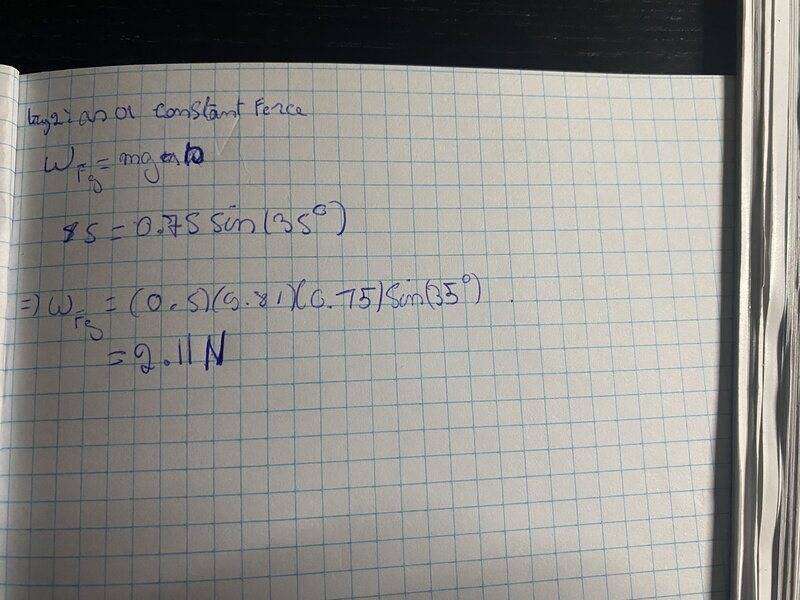 as a constant Force
W_Fg = mg
s = 0.75 Sin(35°)
=> W_Fg = (0.5)(9.81)(0.75)Sin(35°)
= 2.11 N